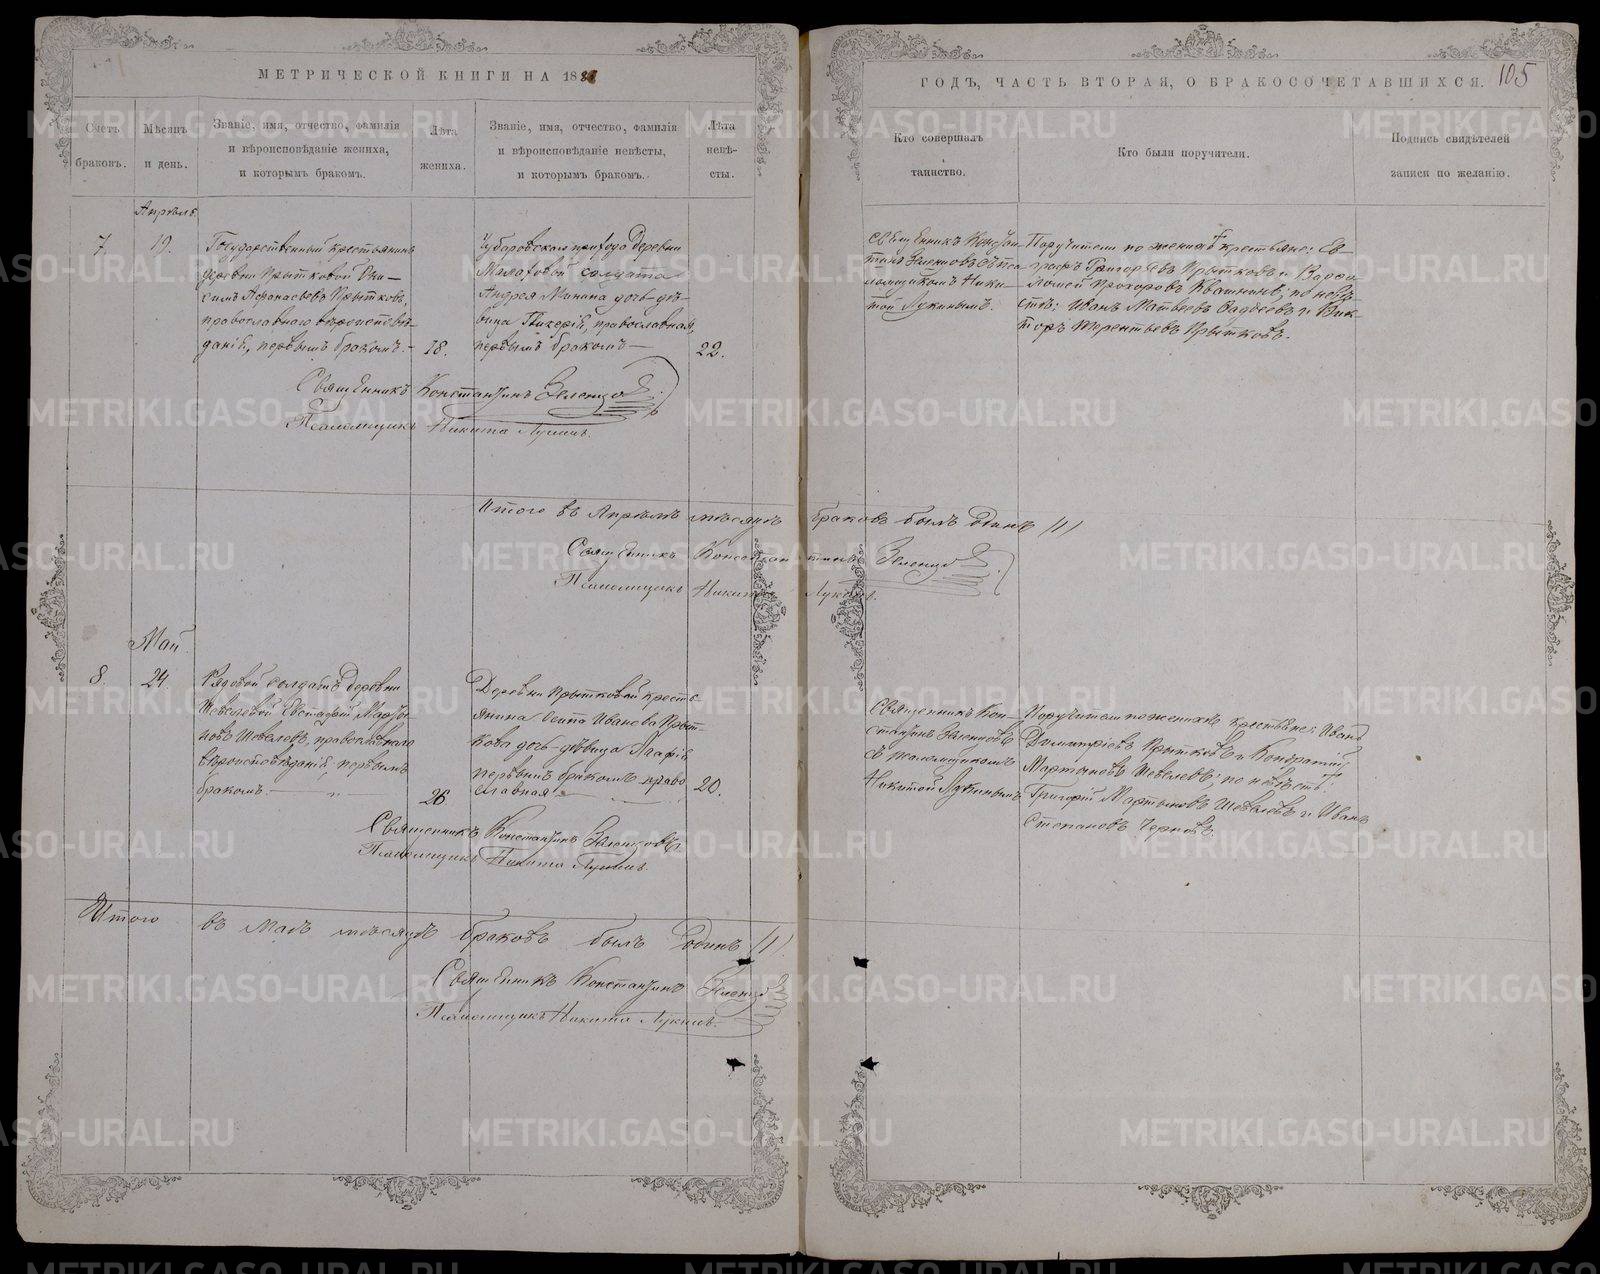 МЕТРИЧЕСКОЙ КНИГИ НА 1881
ГОДЪ, ЧАСТЬ ВТОРАЯ, О БРАКОСОЧЕТАВШИХСЯ.
105
Счетъ браковъ.
Мѣсяцъ и день.
Званіе, имя, отчество, фамилія
и вѣроисповѣданіе жениха,
и которымъ бракомъ.
Лѣта жениха.
Званіе, имя, отчество, фамилія
и вѣроисповѣданіе невѣсты,
и которымъ бракомъ.
Лѣта невѣ-
сты.
Кто совершалъ
таинство.
Кто были поручители.
Подпись свидѣтелей
записи по желанію.
Апрѣль
7.
19.
Государственный крестьянинъ
деревни Прытковой
Афанасьевъ Прытковъ,
православнаго вѣроисповѣ-
данія, первымъ бракомъ.-
18.
прихода деревни
солдата
Андрея Минина дочь-дѣ-
вица Гликерія, православная,
первымъ бракомъ—
22.
Священникъ Констан-
тинъ Зеленцовъ съ пса-
ломщикомъ Ники-
той Лукинымъ.
Поручители по женихѣ крестьяне: Ев-
графъ Григорьевъ Прытковъ и Варфо-
ломей Прохоровъ Квашнинъ; по невѣ-
стѣ: Иванъ Матвѣевъ и Вик-
торъ Терентьевъ Прытковъ.
Священникъ Константинъ Зеленцовъ
Псаломщикъ Никита Лукинъ.
Итого въ Апрѣлѣ мѣсяцѣ браковъ былъ одинъ /1/
Священникъ Константинъ Зеленцовъ
Псаломщикъ Никита Лукинъ.
Май
8.
24.
Рядовой солдатъ деревни
Шевелевой Евстафій Марты-
новъ Шевелевъ, православнаго
вѣроисповѣданія, первымъ
бракомъ.
26
Деревни Прытковой кресть-
янина Осипа Иванова Прыт-
кова дочь-дѣвица Агафія
первымъ бракомъ право
славная
20.
Священникъ Кон-
стантинъ Зеленцовъ
съ псаломщикомъ
Никитой Лукинымъ
Поручители по женихѣ крестьяне: Иванъ
Димитріевъ Прытковъ и Кондратій
Мартыновъ Шевелевъ; по невѣстѣ:
Григорій Мартыновъ Шевелевъ и Иванъ
Степановъ Черновъ.
Священникъ Константинъ Зеленцовъ.
Псаломщикъ Никита Лукинъ.
Итого въ Маѣ мѣсяцѣ браковъ былъ одинъ /1/
Священникъ Константинъ Зеленцовъ
Псаломщикъ Никита Лукинъ.
METRIKI.GASO-URAL.RU